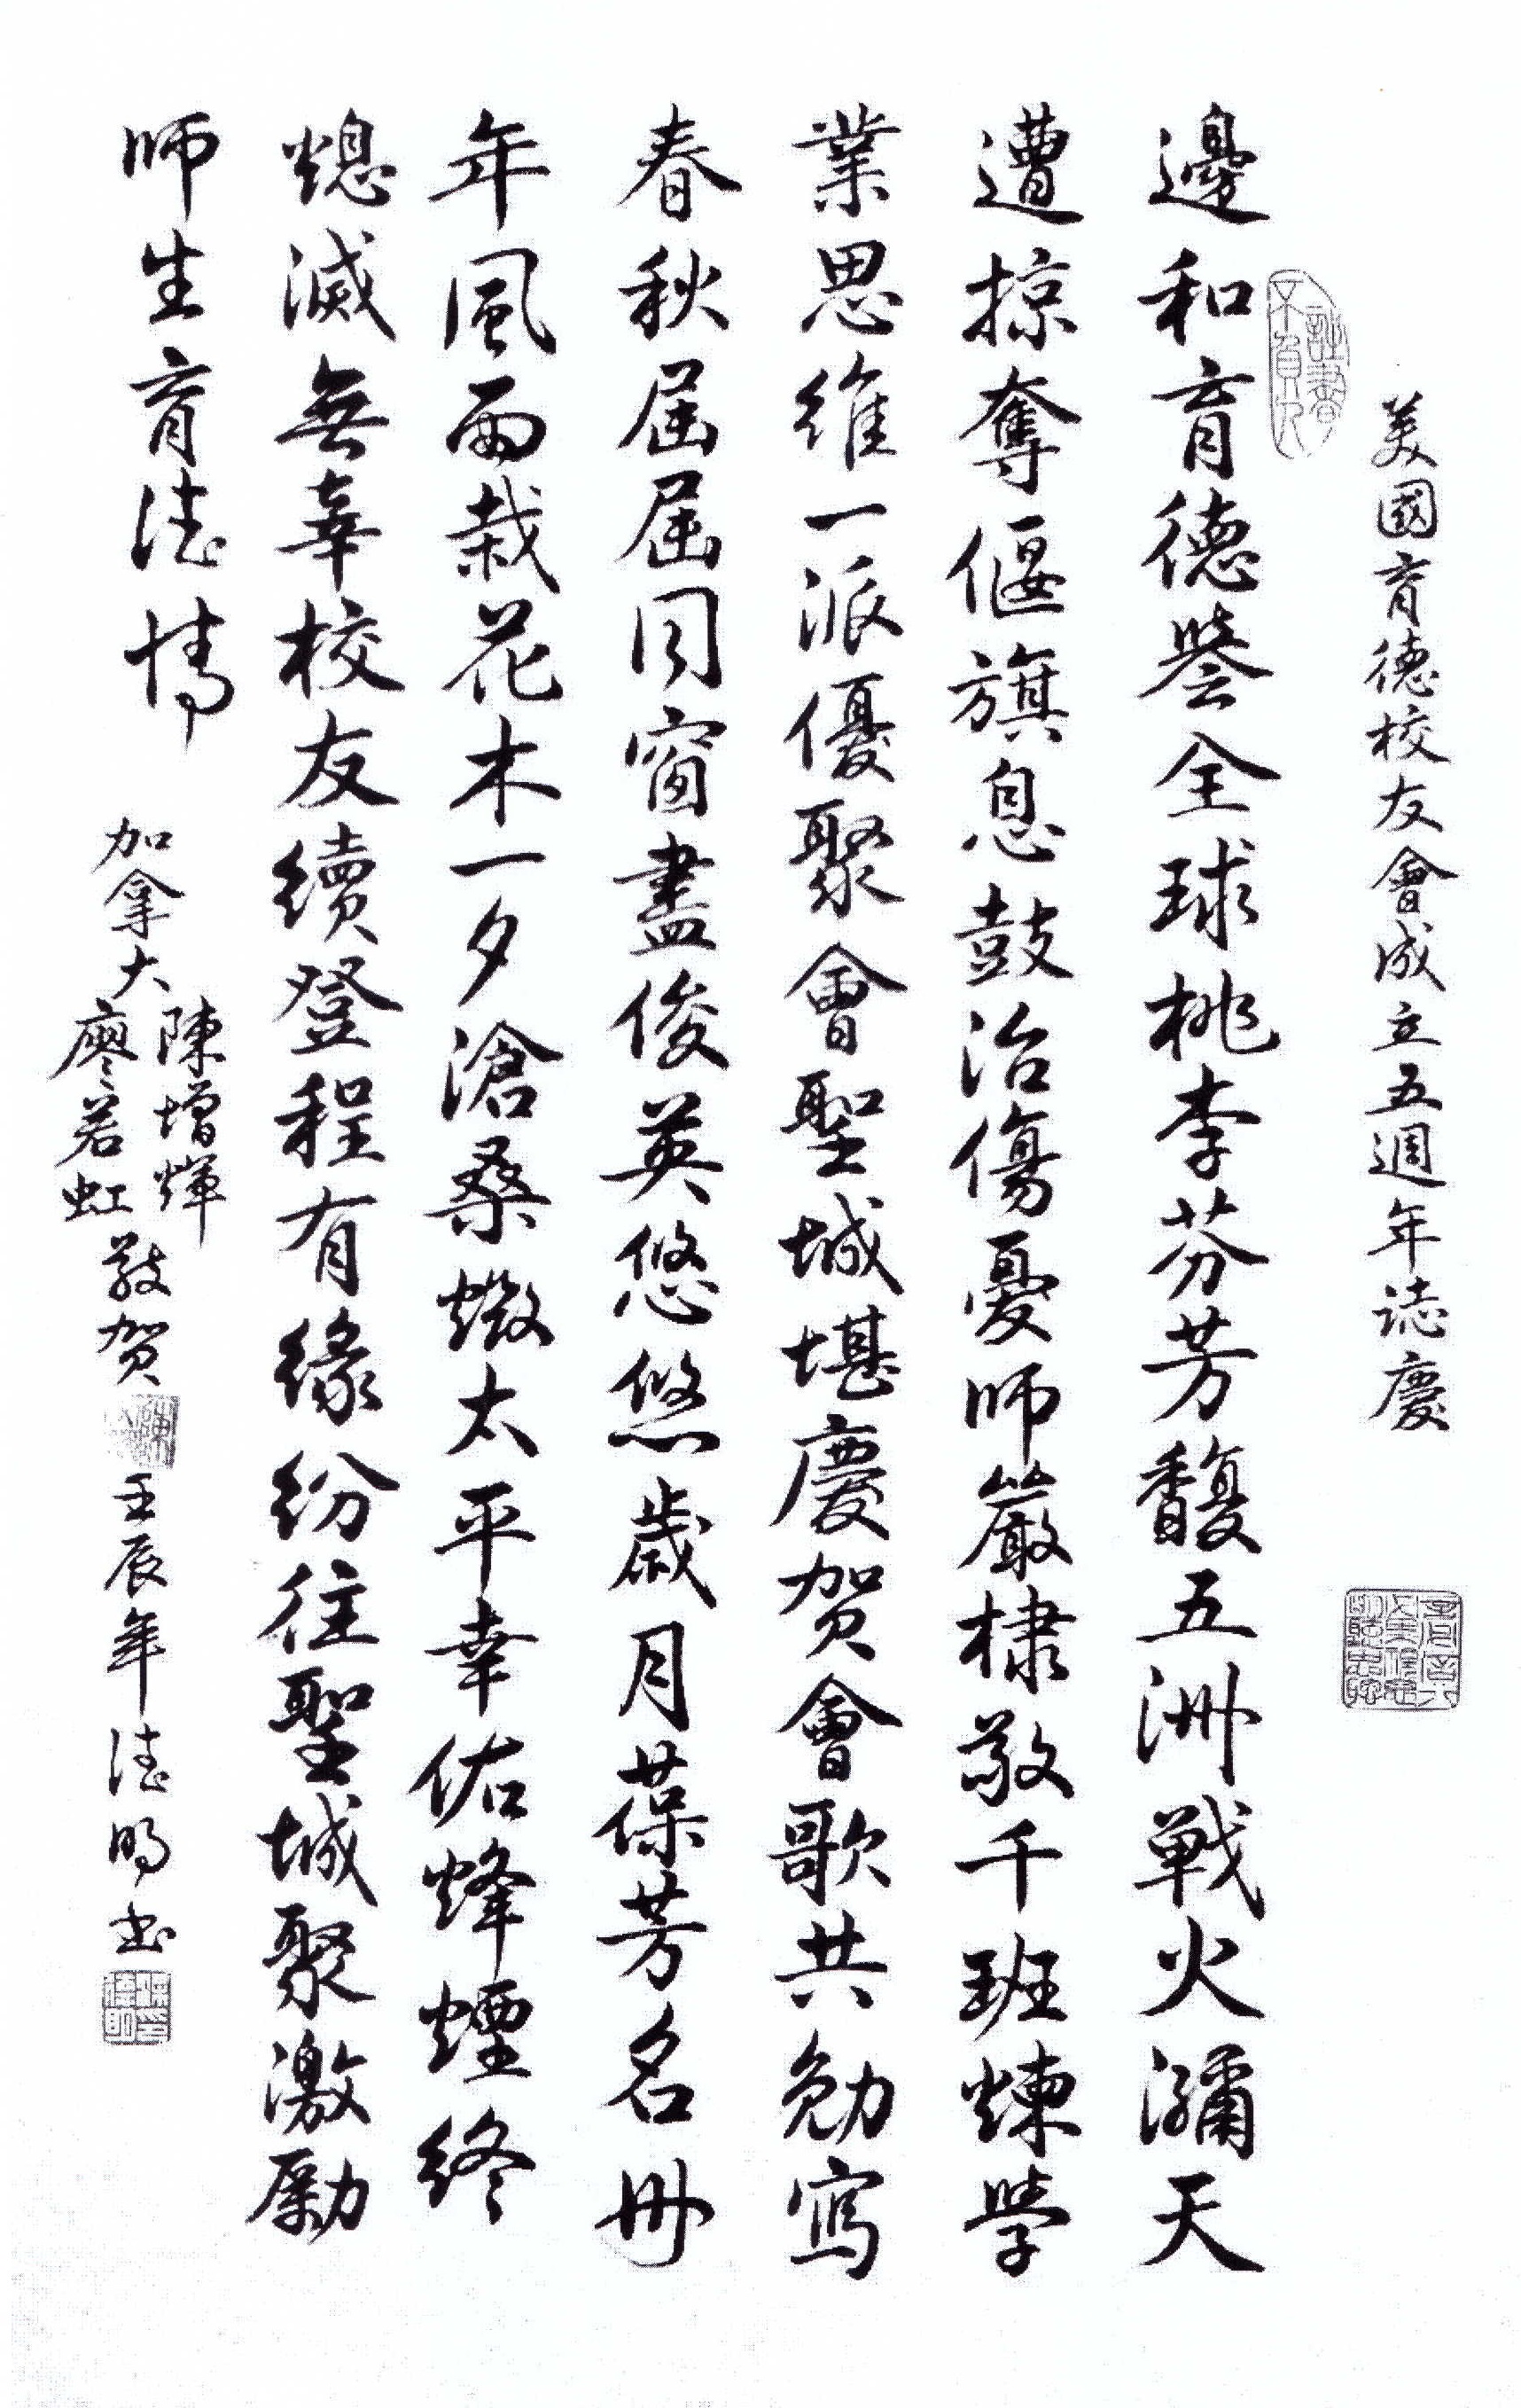 美國育德校友會成立五週年誌慶
邊和育德譽全球桃李芬芳馥五洲戰火瀰天
遭掠奪偃旗息鼓治傷憂師嚴棣敬千班煉學
業思維一派優聚會聖城堪慶賀會歌共勉寫
春秋屆屆同窗盡俊英悠悠歲月葆芳名卅
年風雨栽花木一夕滄桑燬太平幸佑烽煙終
熄滅無辜校友續登程有緣紛往聖城聚激勵
師生育德情
加拿大陳增輝廖若虹敬賀
壬辰年德明書